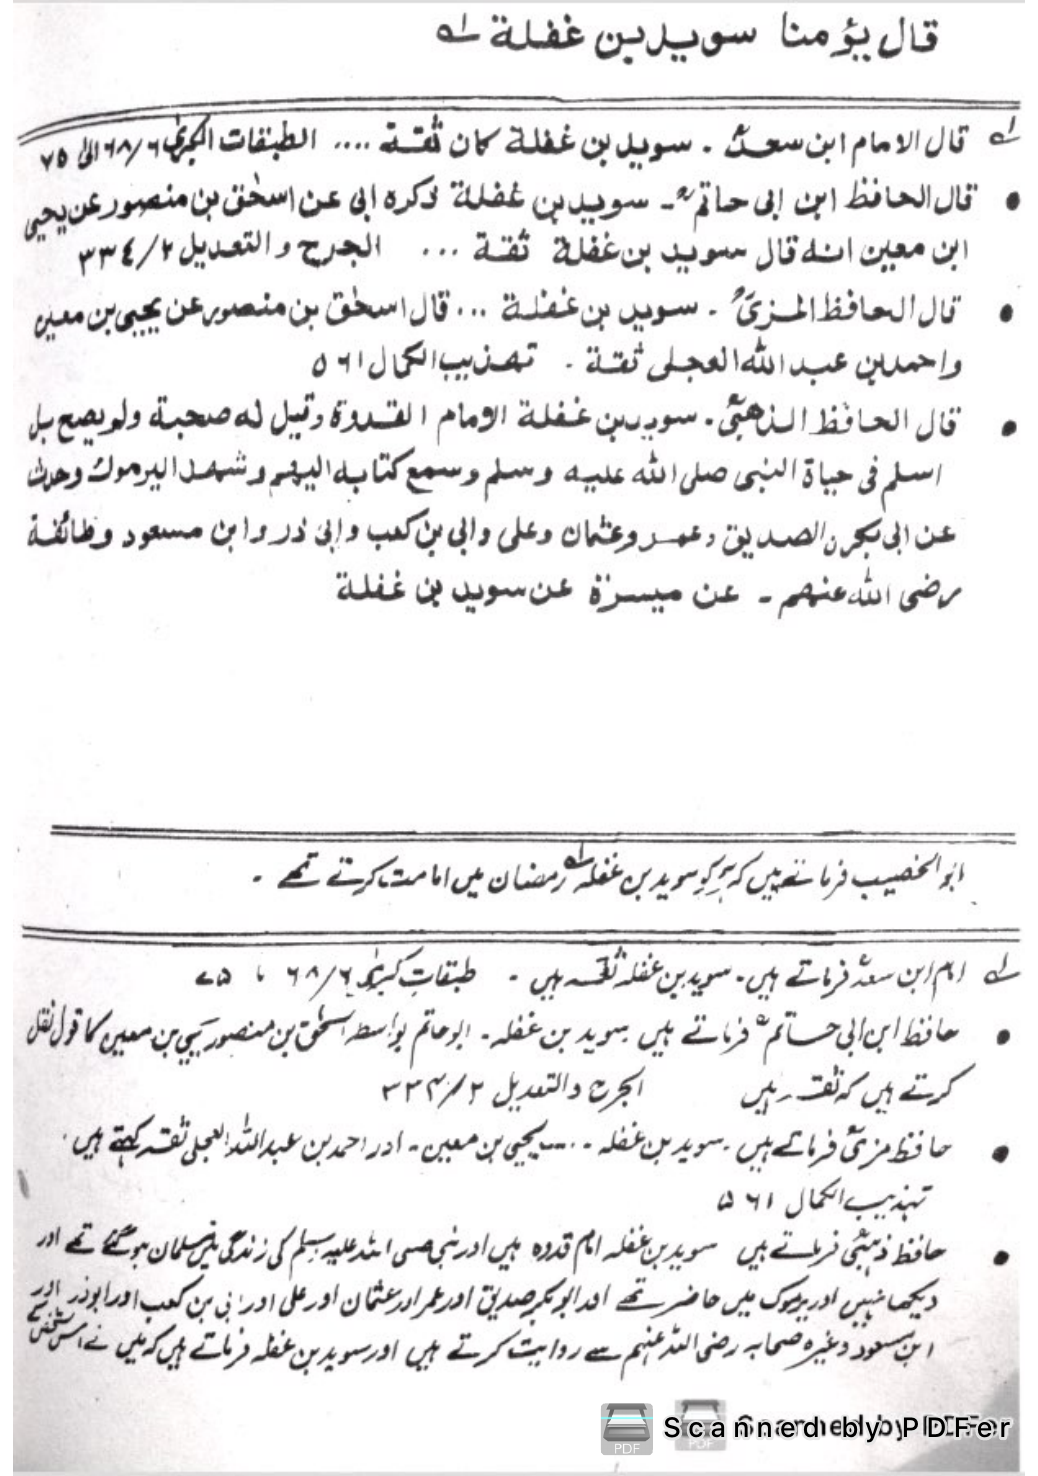 قال يؤمنا سويد بن غفلة لے
لے قال الامام ابن سعدؒ ۔ سويد بن غفلة كان ثقة .... الطبقات الكبرىٰ ٦٨/٦ الى ٧٥
• قال الحافظ ابن ابى حاتمؒ ۔ سويد بن غفلة ذكره ابى عن اسحٰق بن منصور عن يحيى
ابن معين انه قال سويد بن غفلة ثقة ... الجرح و التعديل ٣٣٤/٢
• قال الحافظ المزىؒ ۔ سويد بن غفلة ... قال اسحٰق بن منصور عن يحيى بن معين
واحمد بن عبد الله العجلى ثقة ۔ تهذيب الكمال ٥٦١
• قال الحافظ الذهبىؒ ۔ سويد بن غفلة الامام القدوة وقيل له صحبة ولم يصح بل
اسلم فى حياة النبى صلى الله عليه وسلم وسمع كتابه اليهم وشهد اليرموك وحدث
عن ابى بكرن الصديق وعمر وعثمان وعلى وابي بن كعب وابى ذر وابن مسعود وطائفة
رضى الله عنهم ۔ عن ميسرة عن سويد بن غفلة
ابو الخصیب فرماتے ہیں کہ سوید بن غفلہ لے رمضان میں امامت کرتے تھے ۔
لے امام ابن سعدؒ فرماتے ہیں۔ سوید بن غفلہ ثقہ ہیں ۔ طبقات کبریٰ ٦٨/٦ تا ۷۵
• حافظ ابن ابی حاتمؒ فرماتے ہیں سوید بن غفلہ۔ ابو حاتم بواسطہ اسحٰق بن منصور یحیی بن معین کا قول نقل
کرتے ہیں کہ ثقہ ہیں الجرح والتعدیل ۳۳۴/۲
• حافظ مزیؒ فرماتے ہیں ۔ سوید بن غفلہ ۔ ... یحیی بن معین ۔ اور احمد بن عبداللہ العجلی ثقہ کہتے ہیں ۔
تہذیب الکمال ٥٦١
• حافظ ذہبیؒ فرماتے ہیں سوید بن غفلہ امام قدوہ ہیں اور نبی صلی اللہ علیہ وسلم کی زندگی میں مسلمان ہو گئے تھے اور
دیکھا نہیں اور یرموک میں حاضر تھے اور ابوبکر صدیق اور عمر اور عثمان اور علی اور ابی بن کعب اور ابوذر اور
ابن مسعود وغیرہ صحابہ رضی اللہ عنہم سے روایت کرتے ہیں اور سوید بن غفلہ فرماتے ہیں کہ میں نے اس شخص
Scanned by PDFer
Scanned by PDFer
PDF
PDF